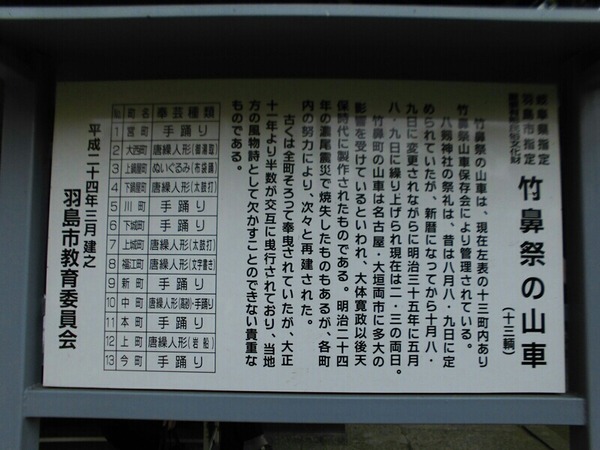 岐阜県指定
羽島市指定
竹鼻祭の山車
(十三輌)
竹鼻祭の山車は、現在左表の十三町内あり
竹鼻祭山車保存会により管理されている。
八剱神社の祭礼は、昔は八月八・九日に定
められていたが、新暦になってから十月八・
九日に変更されながらに明治三十五年に五月
八・九日に繰り上げられ現在は二・三の両日。
竹鼻町の山車は名古屋・大垣両市に多大の
影響を受けているといわれ、大体寛政以後天
保時代に製作されたものである。明治二十四
年の濃尾震災で焼失したものもあるが、各町
内の努力により、次々と再建された。
古くは全町そろって奉曳されていたが、大正
十一年より半数が交互に曳行されており、当地
方の風物詩として欠かすことのできない貴重な
ものである。
町名 奉芸種類
1 宮町 手踊り
2 大西町 唐繰人形
3 上鍋屋町 ぬいぐるみ(布袋踊)
4 下鍋屋町 唐繰人形(太鼓打)
5 川町 手踊り
6 下城町 手踊り
7 上城町 唐繰人形(太鼓打)
8 福江町 唐繰人形(文字書き)
9 新町 手踊り
10 中町 唐繰人形 手踊り
11 本町 手踊り
12 上町 唐繰人形(岩船)
13 今町 手踊り
平成二十四年三月 建之
羽島市教育委員会